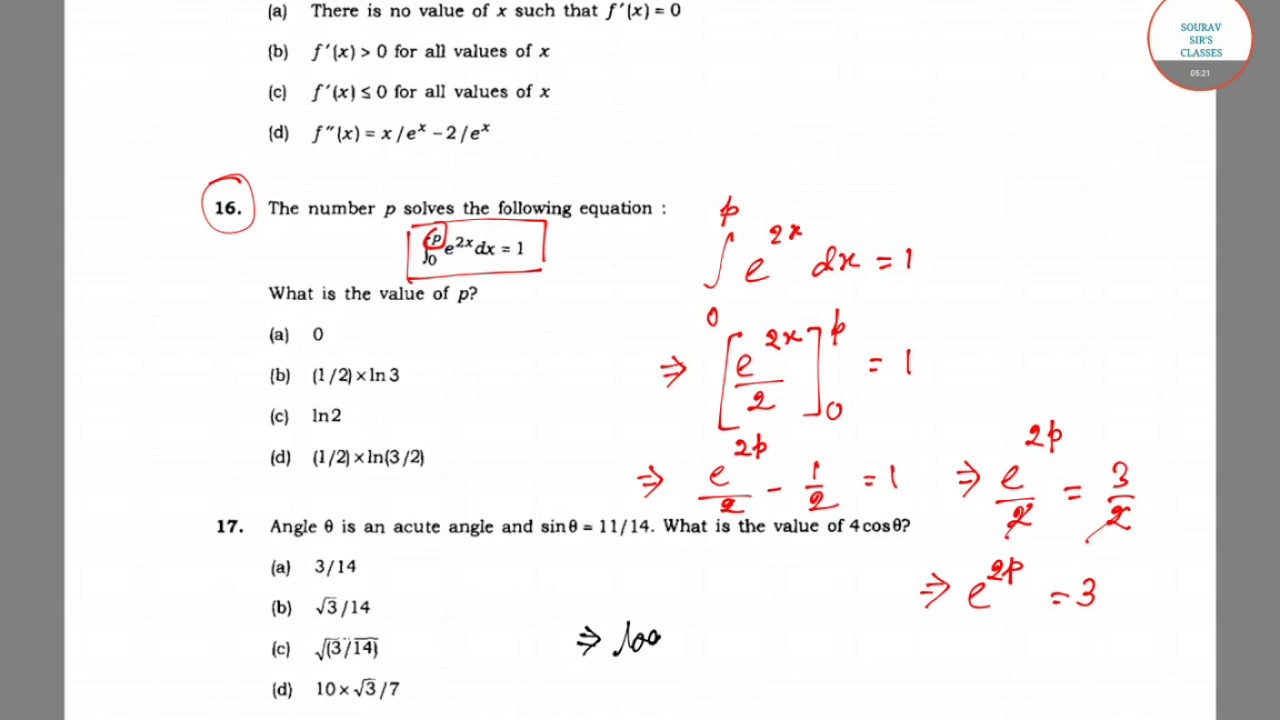 (a) There is no value of x such that f′(x) = 0
SOURAV
SIR'S
CLASSES
05:21
(b) f′(x) > 0 for all values of x
(c) f′(x) ≤ 0 for all values of x
(d) f″(x) = x/eˣ − 2/eˣ
16. The number p solves the following equation :
∫₀ᵖ e²ˣ dx = 1
What is the value of p?
(a) 0
(b) (1/2) × ln 3
(c) ln 2
(d) (1/2) × ln(3/2)
∫₀ᵖ e²ˣ dx = 1
⇒ [e²ˣ/2]₀ᵖ = 1
⇒ e²ᵖ/2 - 1/2 = 1 ⇒ e²ᵖ/2 = 3/2
⇒ e²ᵖ = 3
17. Angle θ is an acute angle and sin θ = 11/14. What is the value of 4 cos θ?
(a) 3/14
(b) √3/14
(c) √(3/14)
(d) 10 × √3/7
⇒